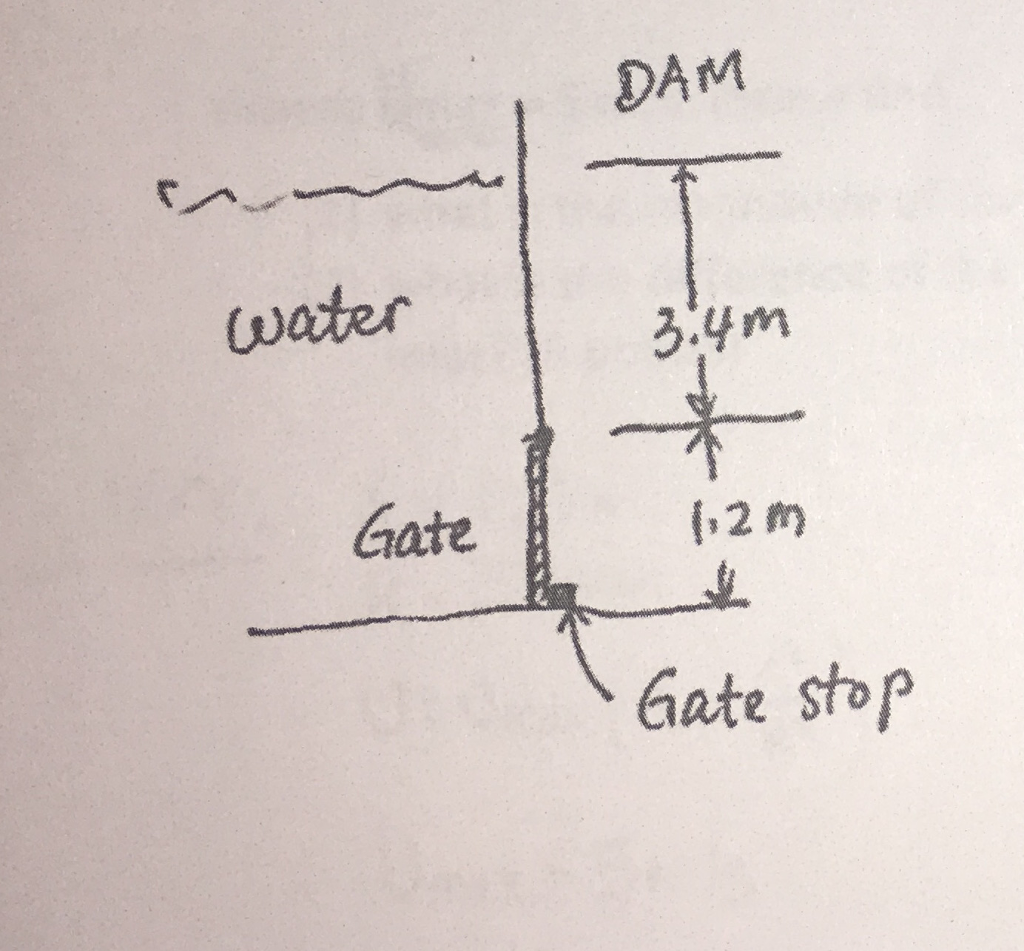 DAM
water
3.4m
Gate
1.2m
Gate stop